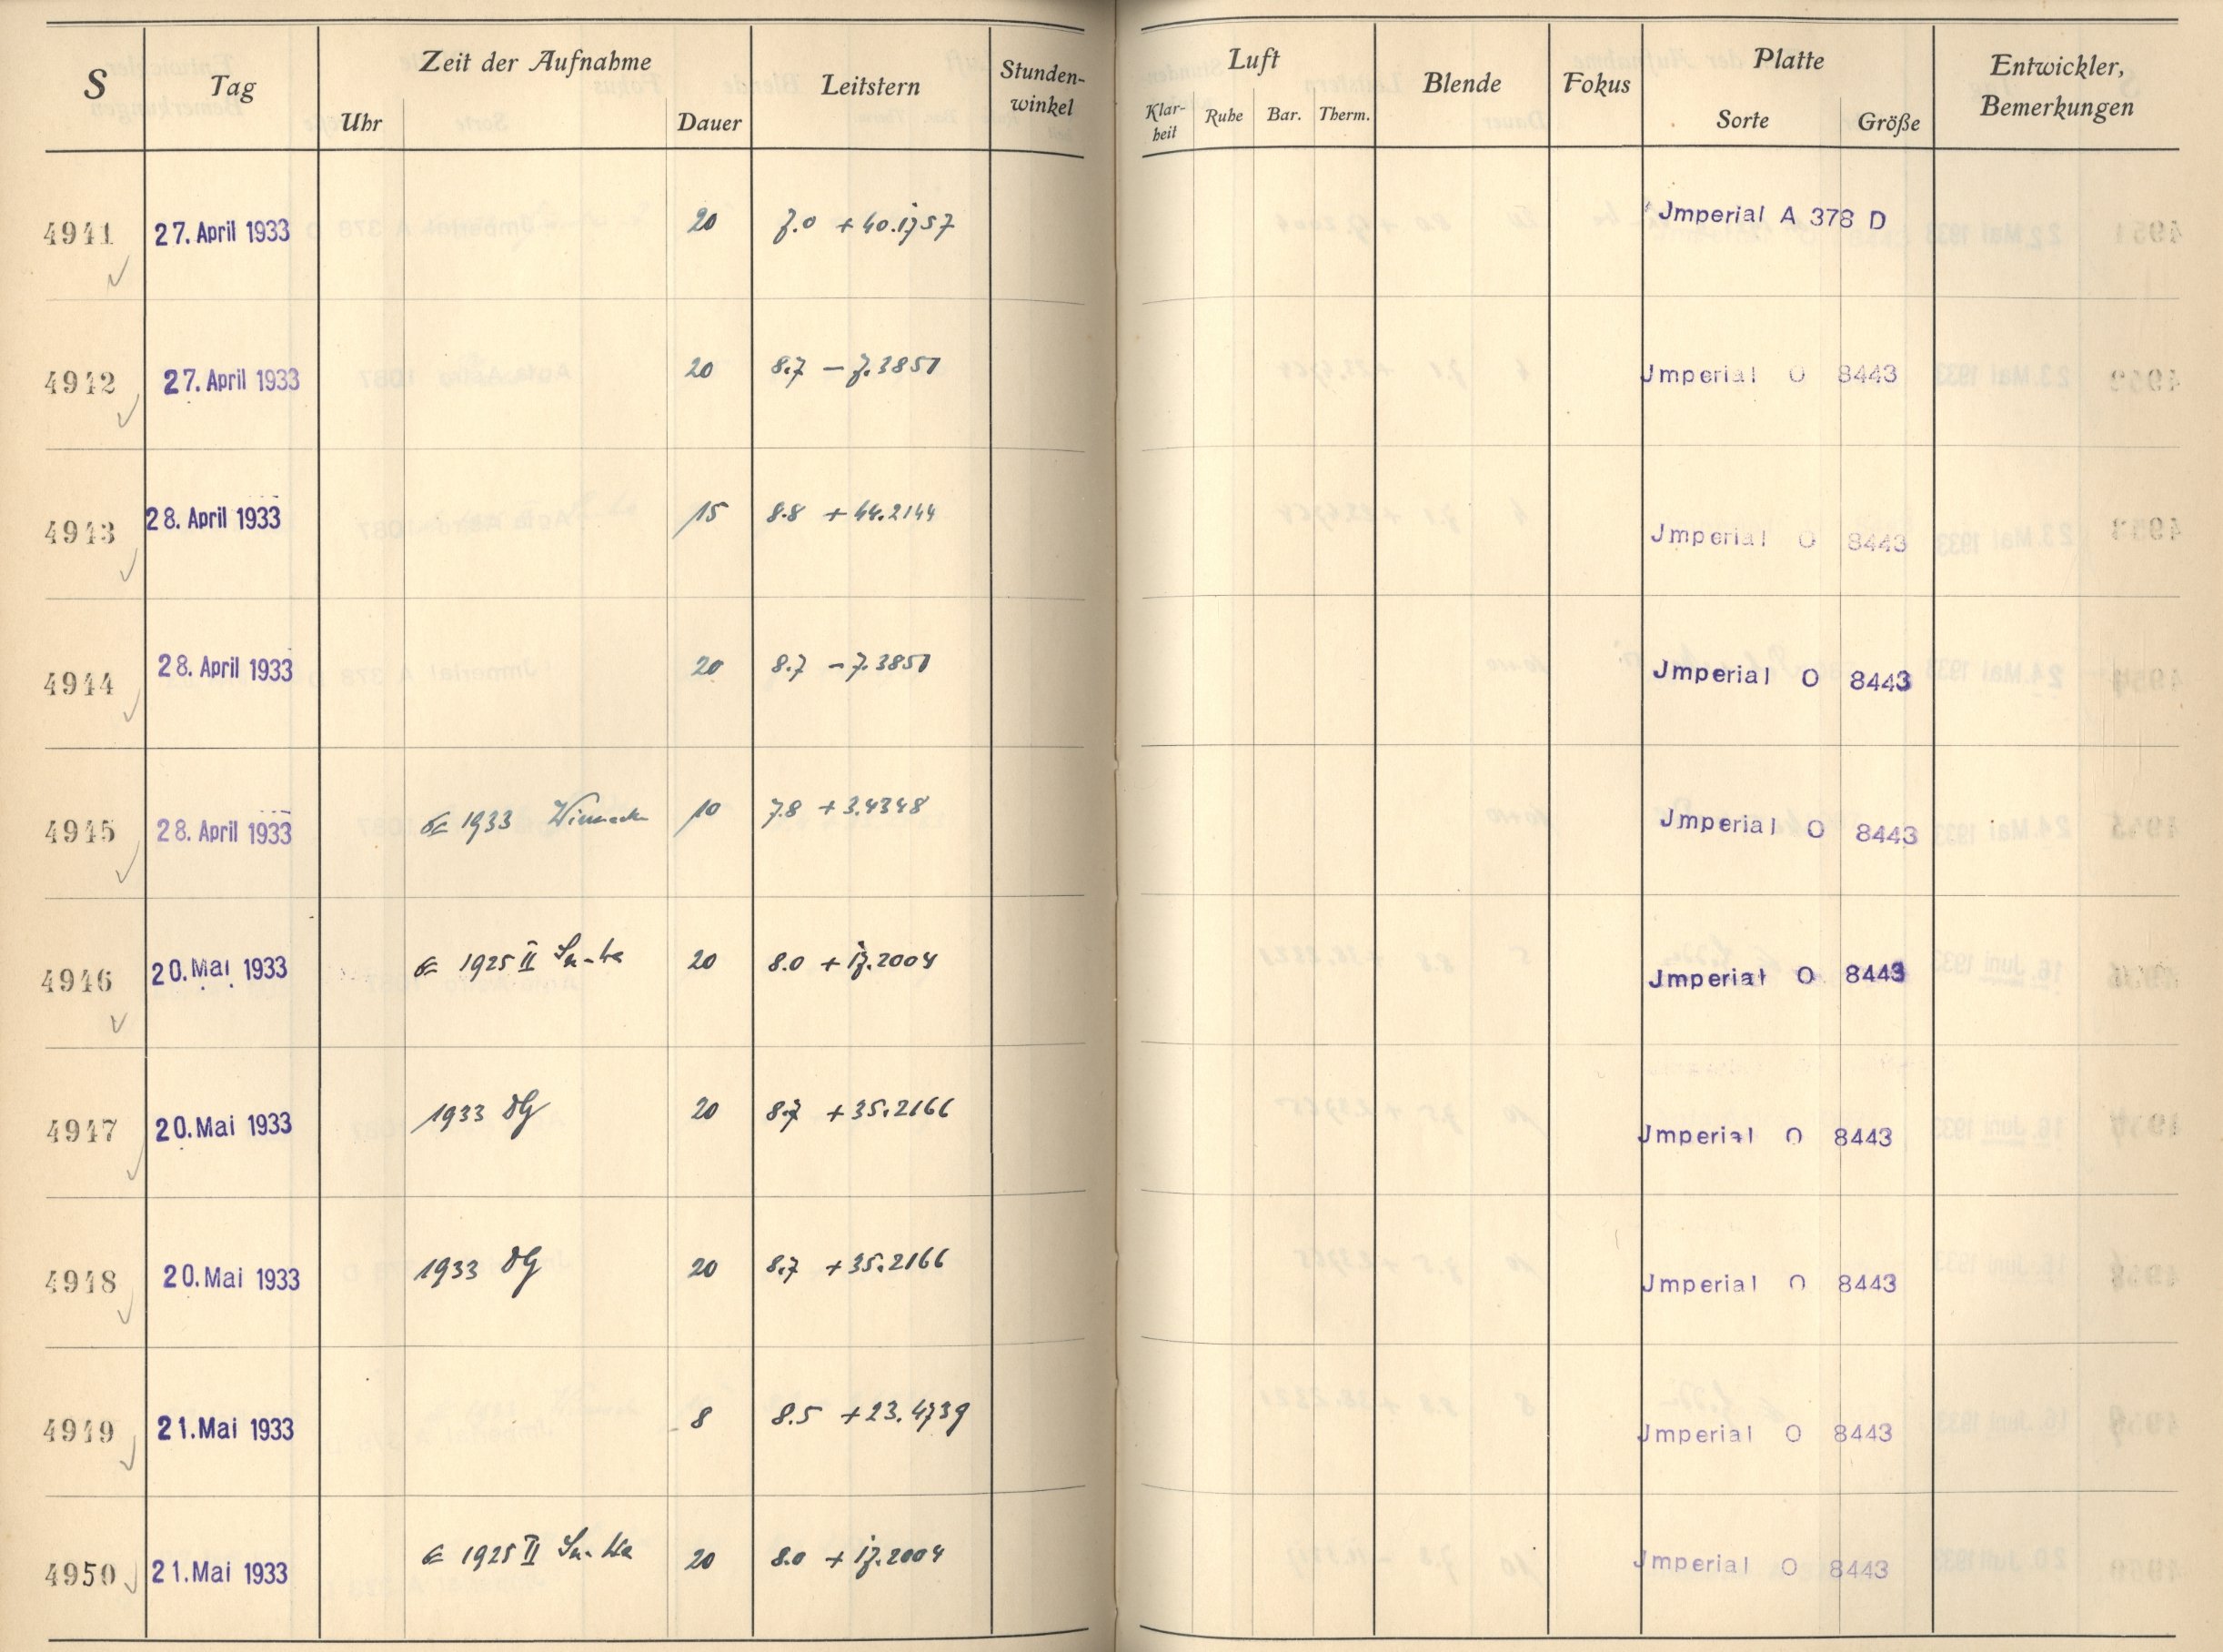 S Tag Zeit der Aufnahme Leitstern Stunden-winkel Luft Blende Fokus Platte Entwickler, Bemerkungen
Uhr Dauer Klar-heit Ruhe Bar. Therm. Sorte Größe
4941 27. April 1933 20 7.0 +40.1757 Jmperial A 378 D
4942 27. April 1933 20 8.7 –7.3851 Jmperial O 8443
4943 28. April 1933 15 8.8 +44.2144 Jmperial O 8443
4944 28. April 1933 20 8.7 –7.3851 Jmperial O 8443
4945 28. April 1933 1933 Winnecke 10 7.8 +3.4348 Jmperial O 8443
4946 20. Mai 1933 1925 II 20 8.0 +17.2004 Jmperial O 8443
4947 20. Mai 1933 1933 20 8.7 +35.2166 Jmperial O 8443
4948 20. Mai 1933 1933 20 8.7 +35.2166 Jmperial O 8443
4949 21. Mai 1933 8 8.5 +23.4739 Jmperial O 8443
4950 21. Mai 1933 1925 II 20 8.0 +17.2004 Jmperial O 8443